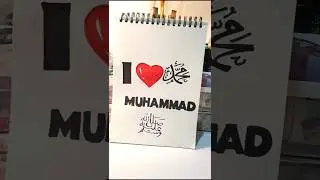 I ❤ محمد
MUHAMMAD
صلى الله عليه وسلم